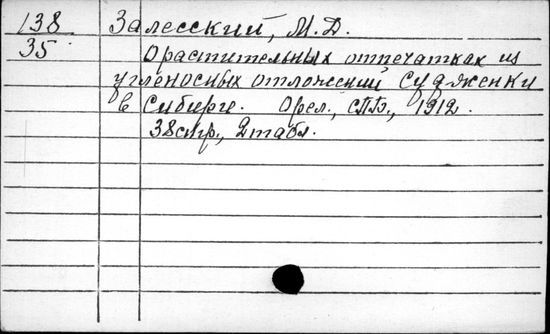 138 Залесский, М. Д.
35 О растительных отпечатках из
угленосных отложений Судженки
в Сибири. Орел, СПБ, 1912.
38стр., 2табл.